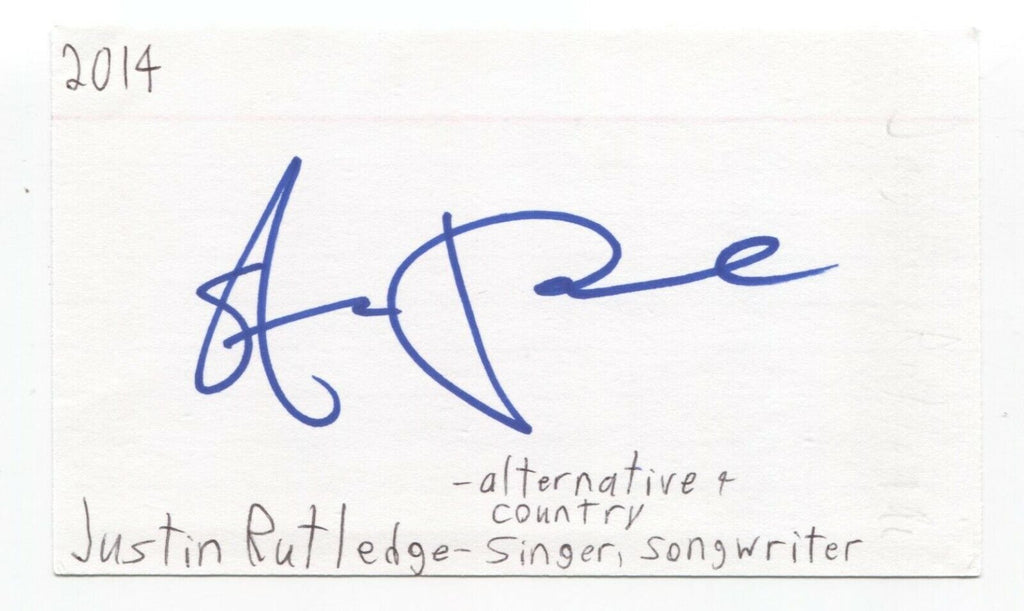 2014
-alternative &
country
Justin Rutledge- Singer, songwriter